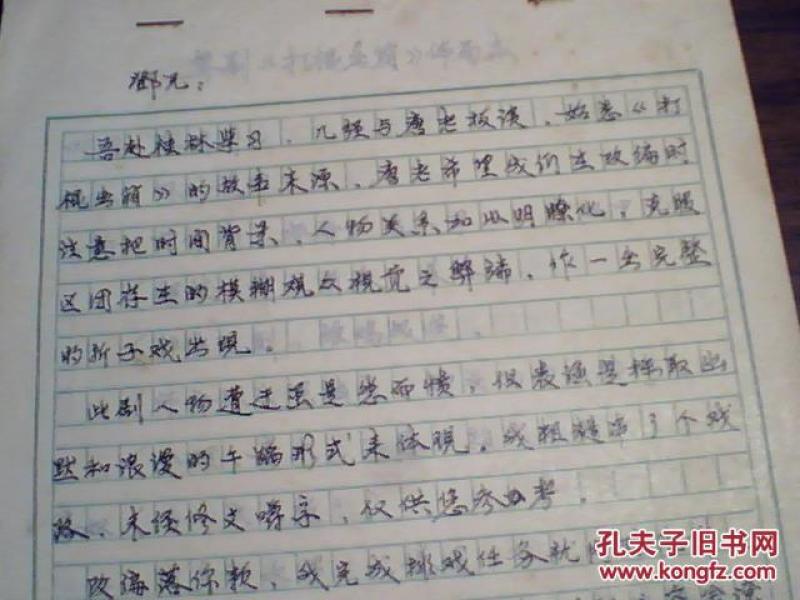 邹兄:
吾赴桂林学习,几经与唐老板谈,始悉《打
棍出箱》的故事来源,唐老希望我们在改编时
注意把时间背景、人物关系加以明瞭化,克服
区团存在的模糊观众视觉之弊端,作一出完整
的折子戏出现。
此剧人物遭遇虽是悲而愤,但表演是採取幽
默和浪漫的 形式来体现。我粗糙 了个戏
路、未经修文嚼字,仅供您参考。
改编落你款,我完成排戏任务就
孔夫子旧书网
www.kongfz.com